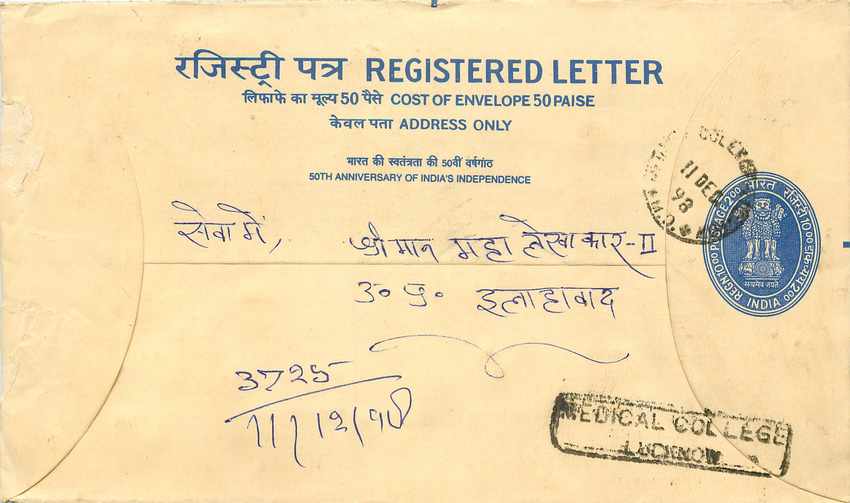 रजिस्ट्री पत्र REGISTERED LETTER
लिफाफे का मूल्य 50 पैसे COST OF ENVELOPE 50 PAISE
केवल पता ADDRESS ONLY
भारत की स्वतंत्रता की 50वीं वर्षगांठ
50TH ANNIVERSARY OF INDIA'S INDEPENDENCE
11 DEC
98
भारत रजिस्ट्री 10.00 डाक-व्यय 2.00
REGN 10.00 POSTAGE 2.00
सत्यमेव जयते
INDIA
सेवा में,
श्रीमान महा लेखाकार-II
उ० प्र० इलाहाबाद
3725
11/12/98
MEDICAL COLLEGE
LUCKNOW